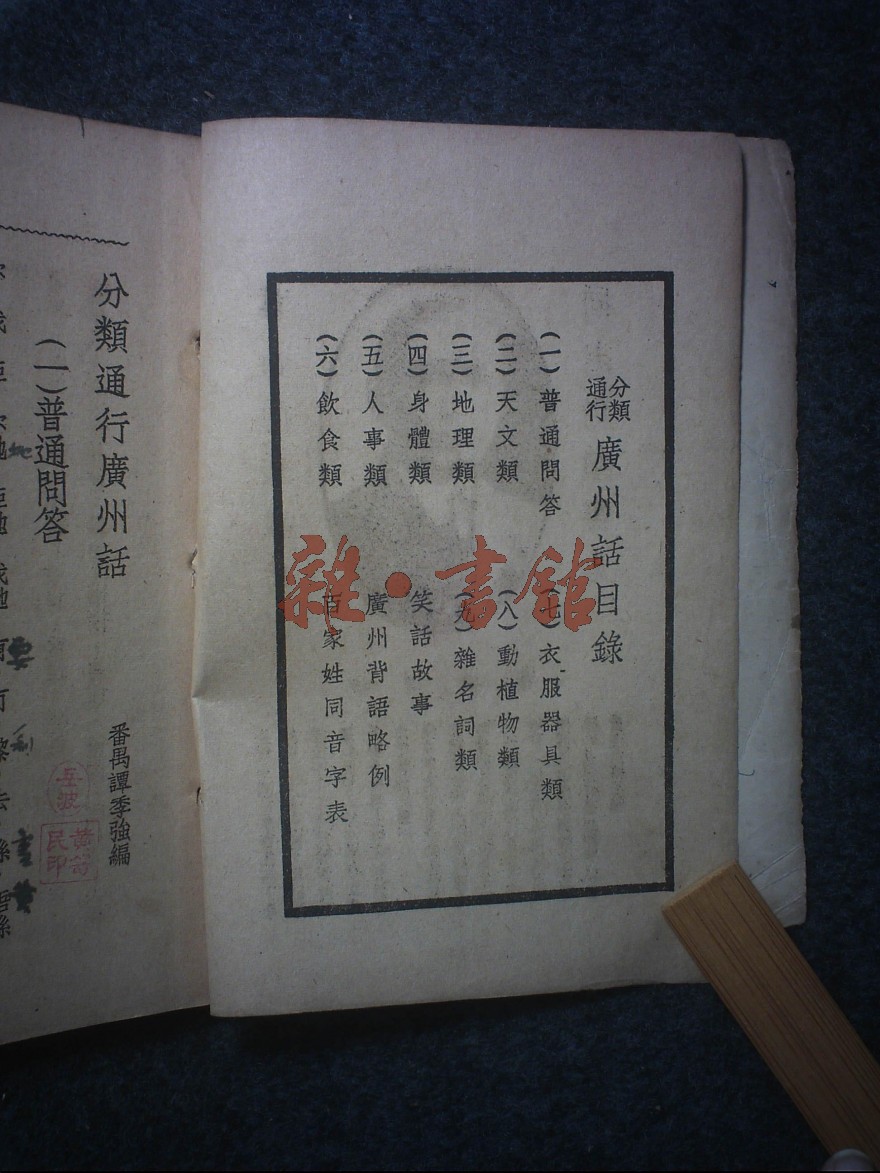 分類通行 廣州話目錄
(一)普通問答
(二)天文類
(三)地理類
(四)身體類
(五)人事類
(六)飲食類
(七)衣服器具類
(八)動植物類
(九)雜名詞類
笑話故事
廣州背語略例
百家姓同音字表
雜·書館
分類通行廣州話
番禺譚季強編
(一)普通問答